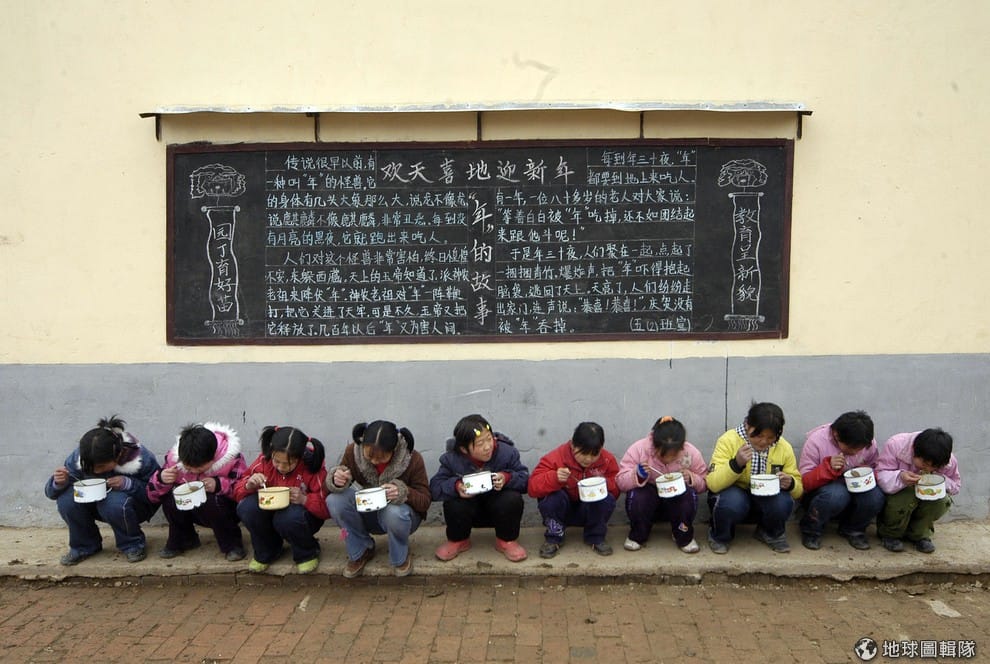 园丁育好苗
欢天喜地迎新年
"年"的故事
传说很早以前,有
一种叫"年"的怪兽,它
的身体有几头大象那么大,说龙不像龙,
说麒麟不像麒麟,非常丑恶,每到没
有月亮的黑夜,它就跑出来吃人。
人们对这个怪兽非常害怕,终日惶惶
不安,东躲西藏,天上的玉帝知道了,派神农
老祖来降伏"年",神农老祖对"年"一阵鞭
打,把它关进了天牢,可是不久,玉帝又把
它释放了,几百年以后"年"又为害人间.
每到年三十夜,"年"
都要到地上来吃人,
有一年,一位八十多岁的老人对大家说:
"等着白白被"年"吃掉,还不如团结起
来跟他斗呢!"
于是年三十夜,人们聚在一起,点起了
一捆捆青竹,爆炸声,把"年"吓得抱起
脑袋,逃回了天上,天亮了,人们纷纷走
出家门,连声说:"恭喜!恭喜!",庆贺没有
被"年"吞掉. (五(2)班宣)
教育呈新貌
地球圖輯隊